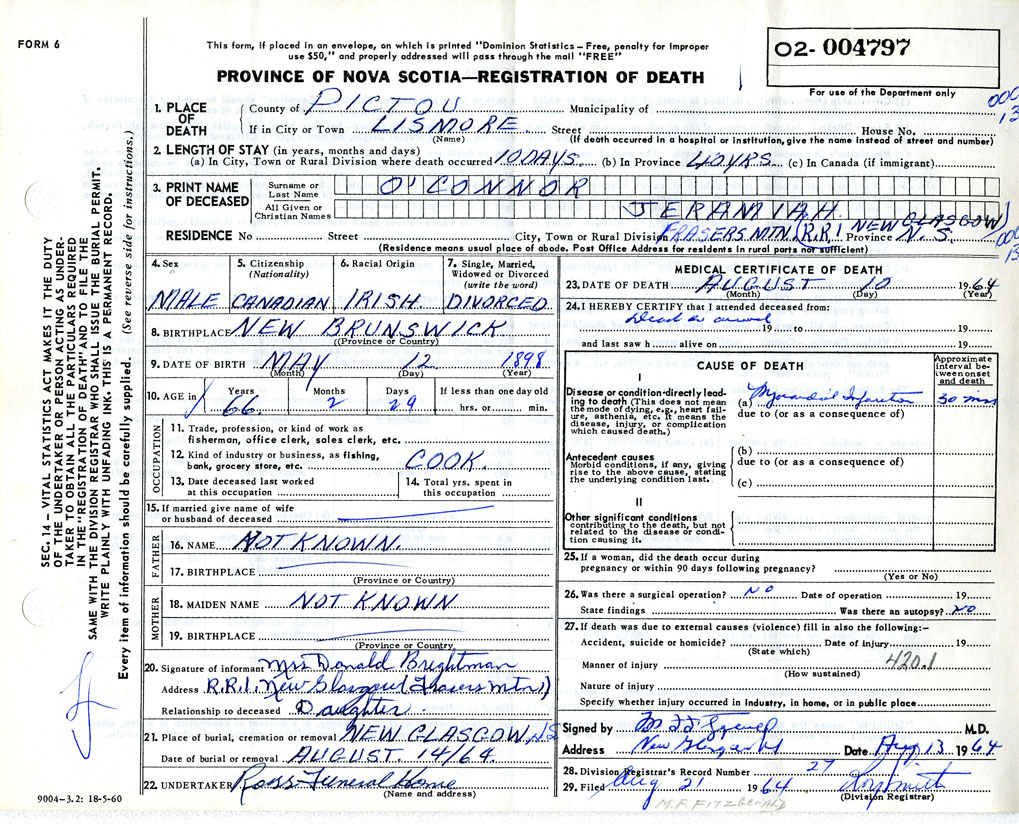 FORM 6
This form, if placed in an envelope, on which is printed "Dominion Statistics – Free, penalty for improper
use $50," and properly addressed will pass through the mail "FREE"
PROVINCE OF NOVA SCOTIA—REGISTRATION OF DEATH
02- 004797
For use of the Department only
SEC. 14 – VITAL STATISTICS ACT MAKES IT THE DUTY
OF THE UNDERTAKER OR PERSON ACTING AS UNDER-
TAKER TO OBTAIN ALL THE PARTICULARS REQUIRED
IN THE "REGISTRATION OF DEATH" AND TO FILE THE
SAME WITH THE DIVISION REGISTRAR WHO SHALL ISSUE THE BURIAL PERMIT.
WRITE PLAINLY WITH UNFADING INK. THIS IS A PERMANENT RECORD.
Every item of information should be carefully supplied. (See reverse side for instructions.)
1. PLACE OF DEATH
County of PICTOU Municipality of
If in City or Town LISMORE Street House No.
(Name) (If death occurred in a hospital or institution, give the name instead of street and number)
2. LENGTH OF STAY (in years, months and days)
(a) In City, Town or Rural Division where death occurred 10 DAYS. (b) In Province 40 YRS. (c) In Canada (if immigrant)
3. PRINT NAME OF DECEASED
Surname or Last Name O'CONNOR
All Given or Christian Names JERAMIAH.
RESIDENCE No Street City, Town or Rural Division FRASERS MTN. (R.R.1 NEW GLASGOW) Province N.S.
(Residence means usual place of abode. Post Office Address for residents in rural parts not sufficient)
4. Sex MALE
5. Citizenship (Nationality) CANADIAN
6. Racial Origin IRISH.
7. Single, Married, Widowed or Divorced (write the word) DIVORCED
8. BIRTHPLACE NEW BRUNSWICK
(Province or Country)
9. DATE OF BIRTH MAY 12 1898
(Month) (Day) (Year)
10. AGE in Years 66. Months 2 Days 29 If less than one day old hrs. or min.
OCCUPATION
11. Trade, profession, or kind of work as
fisherman, office clerk, sales clerk, etc.
12. Kind of industry or business, as fishing,
bank, grocery store, etc. COOK.
13. Date deceased last worked
at this occupation
14. Total yrs. spent in
this occupation
15. If married give name of wife
or husband of deceased
FATHER
16. NAME NOT KNOWN.
17. BIRTHPLACE
(Province or Country)
MOTHER
18. MAIDEN NAME NOT KNOWN
19. BIRTHPLACE
(Province or Country)
20. Signature of informant Mrs Donald Brightman
Address R.R.1, New Glasgow (Frasers Mtn.)
Relationship to deceased Daughter.
21. Place of burial, cremation or removal NEW GLASGOW, NS
Date of burial or removal AUGUST. 14/64.
22. UNDERTAKER Ross Funeral Home
(Name and address)
9004-3.2: 18-5-60
MEDICAL CERTIFICATE OF DEATH
23. DATE OF DEATH AUGUST 10 1964
(Month) (Day) (Year)
24. I HEREBY CERTIFY that I attended deceased from:
Dead on arrival
19 to 19
and last saw h alive on 19
CAUSE OF DEATH
Approximate interval between onset and death
I
Disease or condition directly lead-
ing to death (This does not mean
the mode of dying, e.g., heart fail-
ure, asthenia, etc. It means the
disease, injury, or complication
which caused death.)
(a) Myocardial Infarction 30 mns
due to (or as a consequence of)
Antecedent causes
Morbid conditions, if any, giving
rise to the above cause, stating
the underlying condition last.
(b)
due to (or as a consequence of)
(c)
II
Other significant conditions
contributing to the death, but not
related to the disease or condi-
tion causing it.
25. If a woman, did the death occur during
pregnancy or within 90 days following pregnancy?
(Yes or No)
26. Was there a surgical operation? NO Date of operation 19
State findings Was there an autopsy? NO
27. If death was due to external causes (violence) fill in also the following:–
Accident, suicide or homicide? Date of injury 19
(State which)
Manner of injury 420.1
(How sustained)
Nature of injury
Specify whether injury occurred in Industry, in home, or in public place
Signed by M.D.
Address New Glasgow NS Date Aug 13 1964
28. Division Registrar's Record Number 27
29. Filed Aug 21 1964
(Division Registrar)
M.F. FITZGERALD